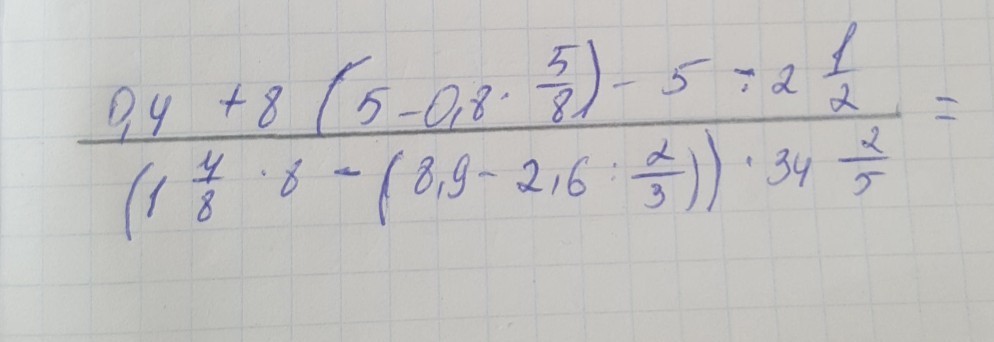 0,4 + 8 (5 - 0,8 · 5/8) - 5 : 2 1/2 =
(1 4/8 · 8 - (8,9 - 2,6 : 2/3)) · 34 2/5